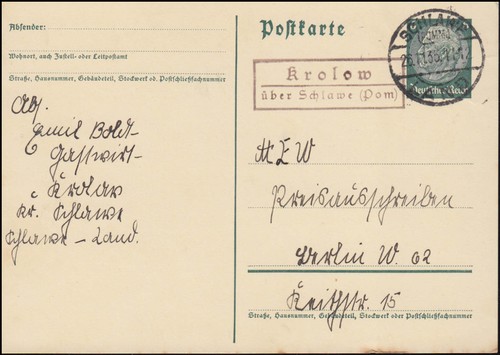 Absender:
Wohnort, auch Zustell- oder Leitpostamt
Straße, Hausnummer, Gebäudeteil, Stockwerk od. Postschließfachnummer
Abs.
Emil Boldt-
Gastwirt-
Krolow
Kr. Schlawe
Schlawe - Land.
Postkarte
SCHLAWE
(POMM)
Deutsches Reich
Krolow
über Schlawe (Pom)
MEW
Preisausschreiben
Berlin W. 62
Keithstr. 15
Straße, Hausnummer, Gebäudeteil, Stockwerk oder Postschließfachnummer